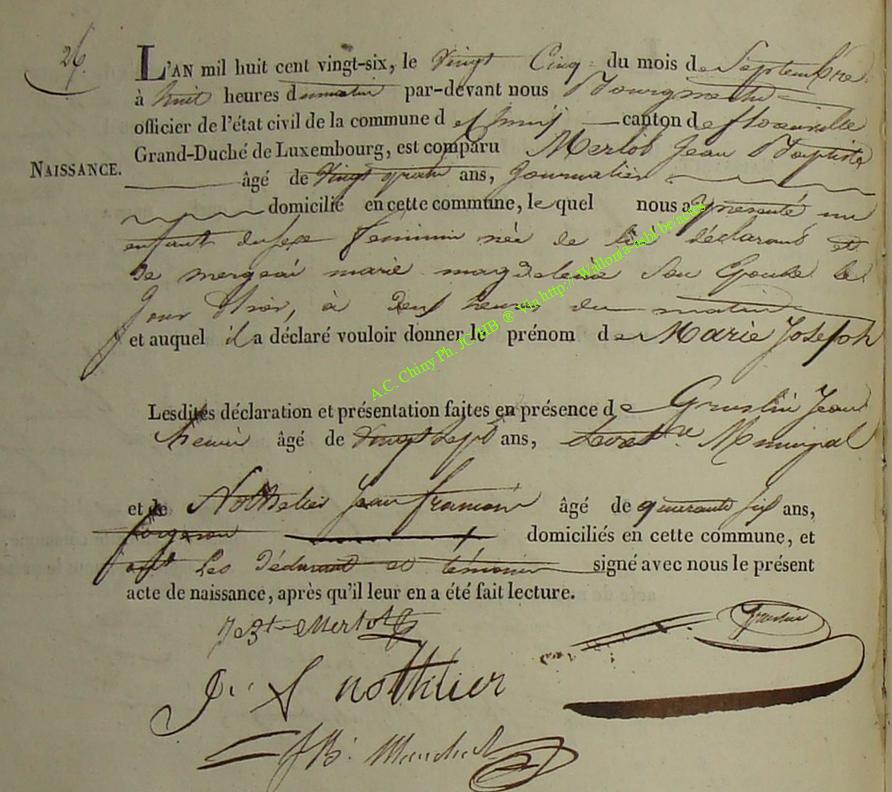 26
L'AN mil huit cent vingt-six, le vingt Cinq du mois de Septembre
à huit heures du matin par-devant nous Bourgmestre
officier de l'état civil de la commune d canton de florenville
NAISSANCE.
Grand-Duché de Luxembourg, est comparu Merlot Jean Baptiste
âgé de vingt quatre ans, Journalier
domicilié en cette commune, lequel nous a présenté un
enfant du sexe féminin née de lui déclarant et
de marie magdeleine Son Epouse le
Jour d'hier, à deux heures du matin
et auquel il a déclaré vouloir donner le prénom de Marie Joseph
A.C. Chiny Ph. JC HB @ Via http://Wallonia-asbl.be/actes
Lesdites déclaration et présentation faites en présence de Gruslin Jean
henri âgé de vingt sept ans, Municipal
et de Nothelier Jean françois âgé de quarante six ans,
forgeron domiciliés en cette commune, et
ont les déclarant et témoins signé avec nous le présent
acte de naissance, après qu'il leur en a été fait lecture.
Merlot
Gruslin
J. f nothlier